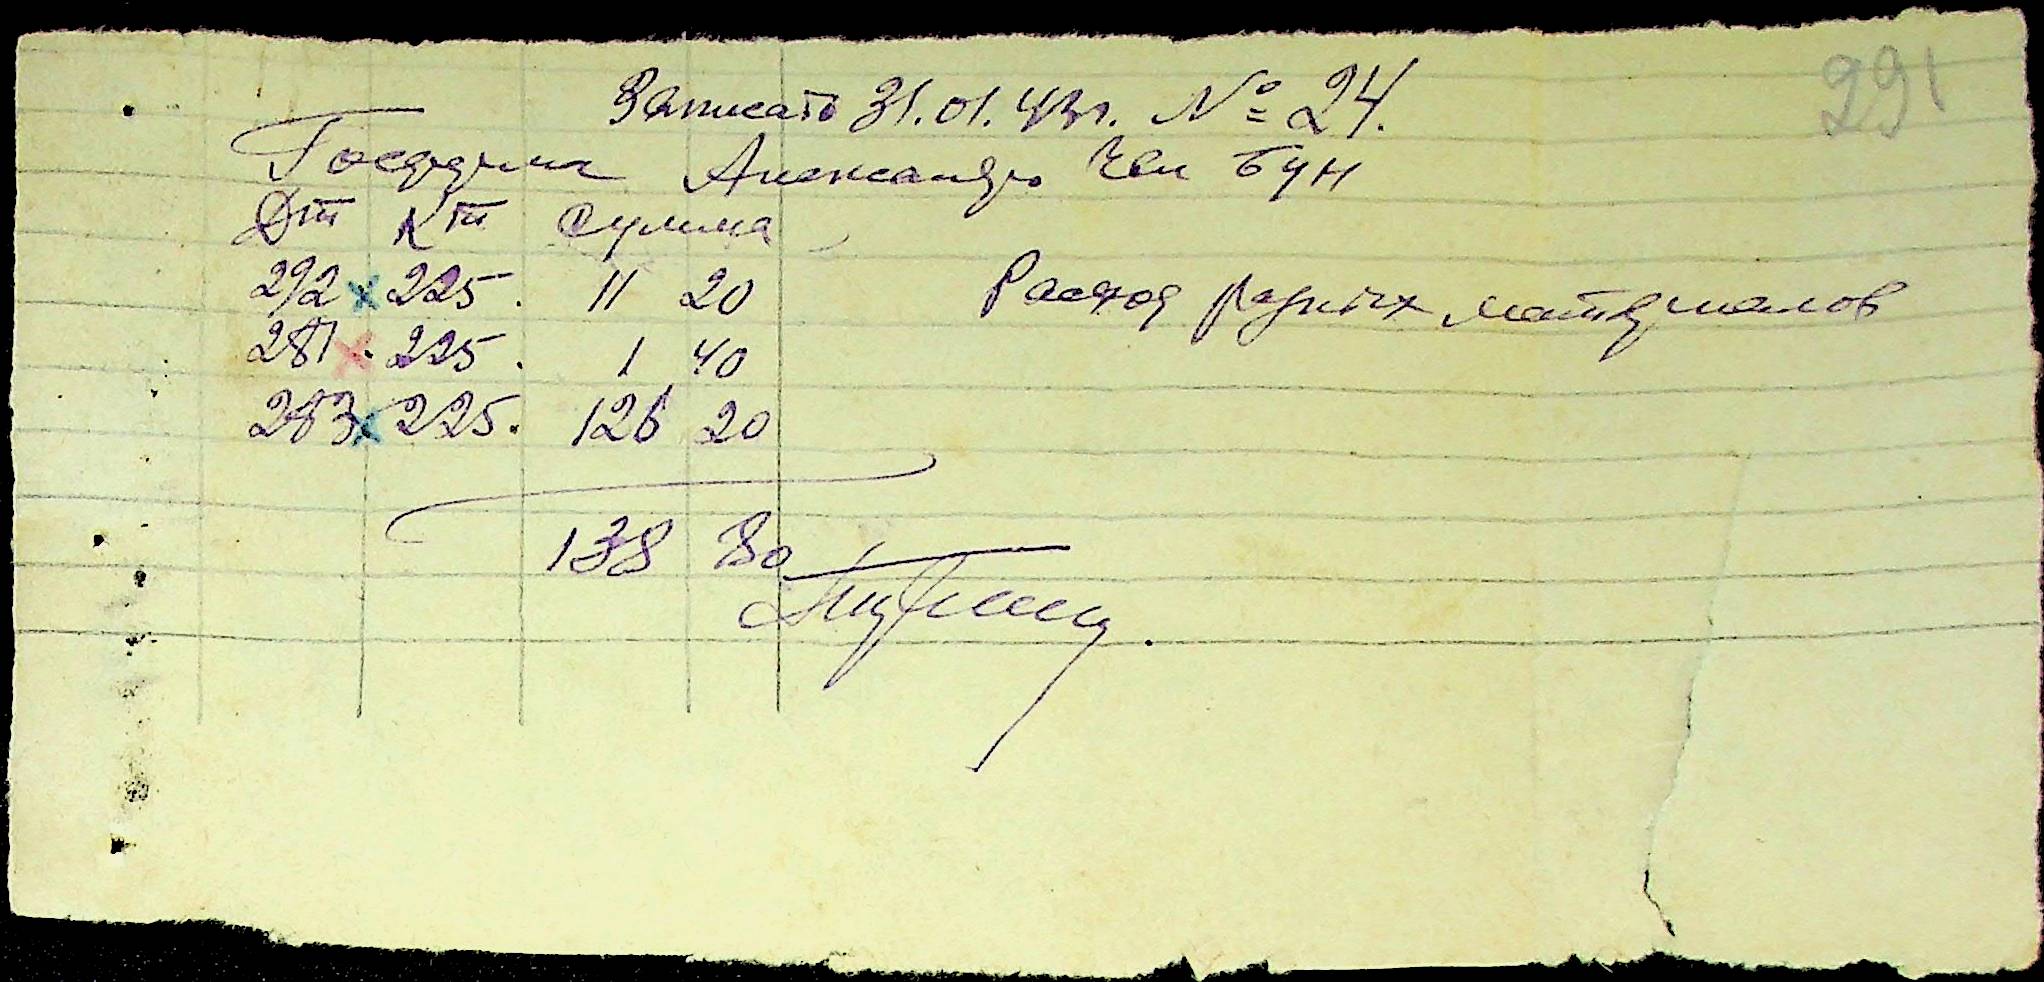 291
Записать 31.01.43г. № 24.
Александр Чен Бун
Дт Кт Сумма
292 x 225. 11 20
Расход разных материалов
281 x 225. 1 40
283 x 225. 126 20
138 80